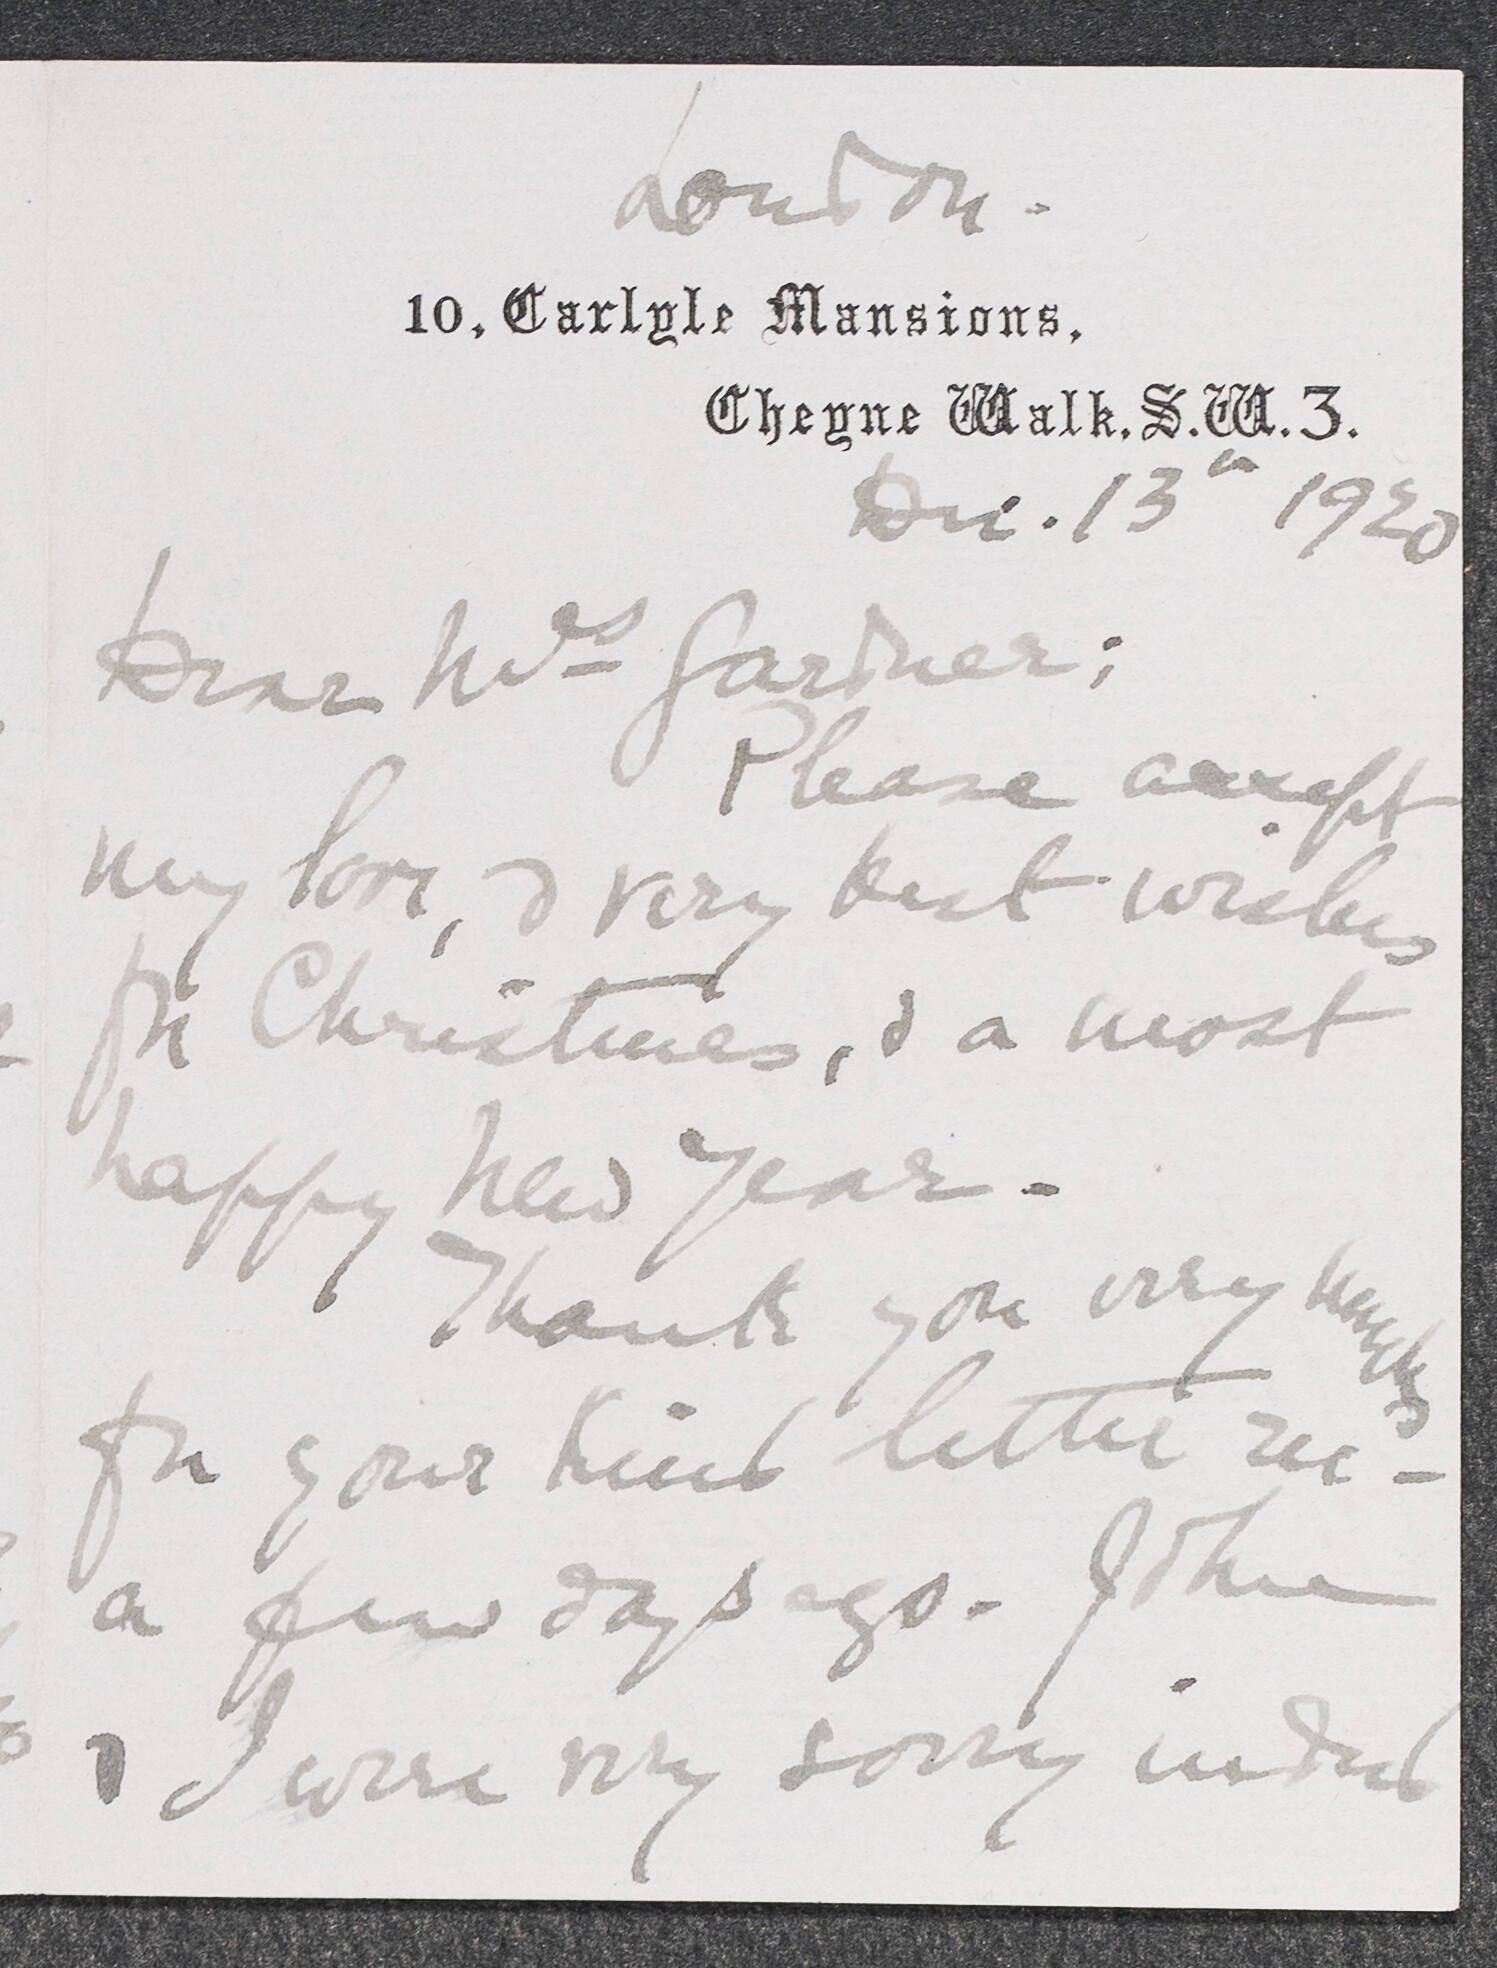 London.
10, Carlyle Mansions,
Cheyne Walk, S.W.3.
Dec. 13th 1920
Dear Mrs Gardner;
Please accept
my love, & very best wishes
for Christmas, & a most
happy New Year.
Thank you very much
for your kind letter rec-
a few days ago. John
& I were very sorry indeed